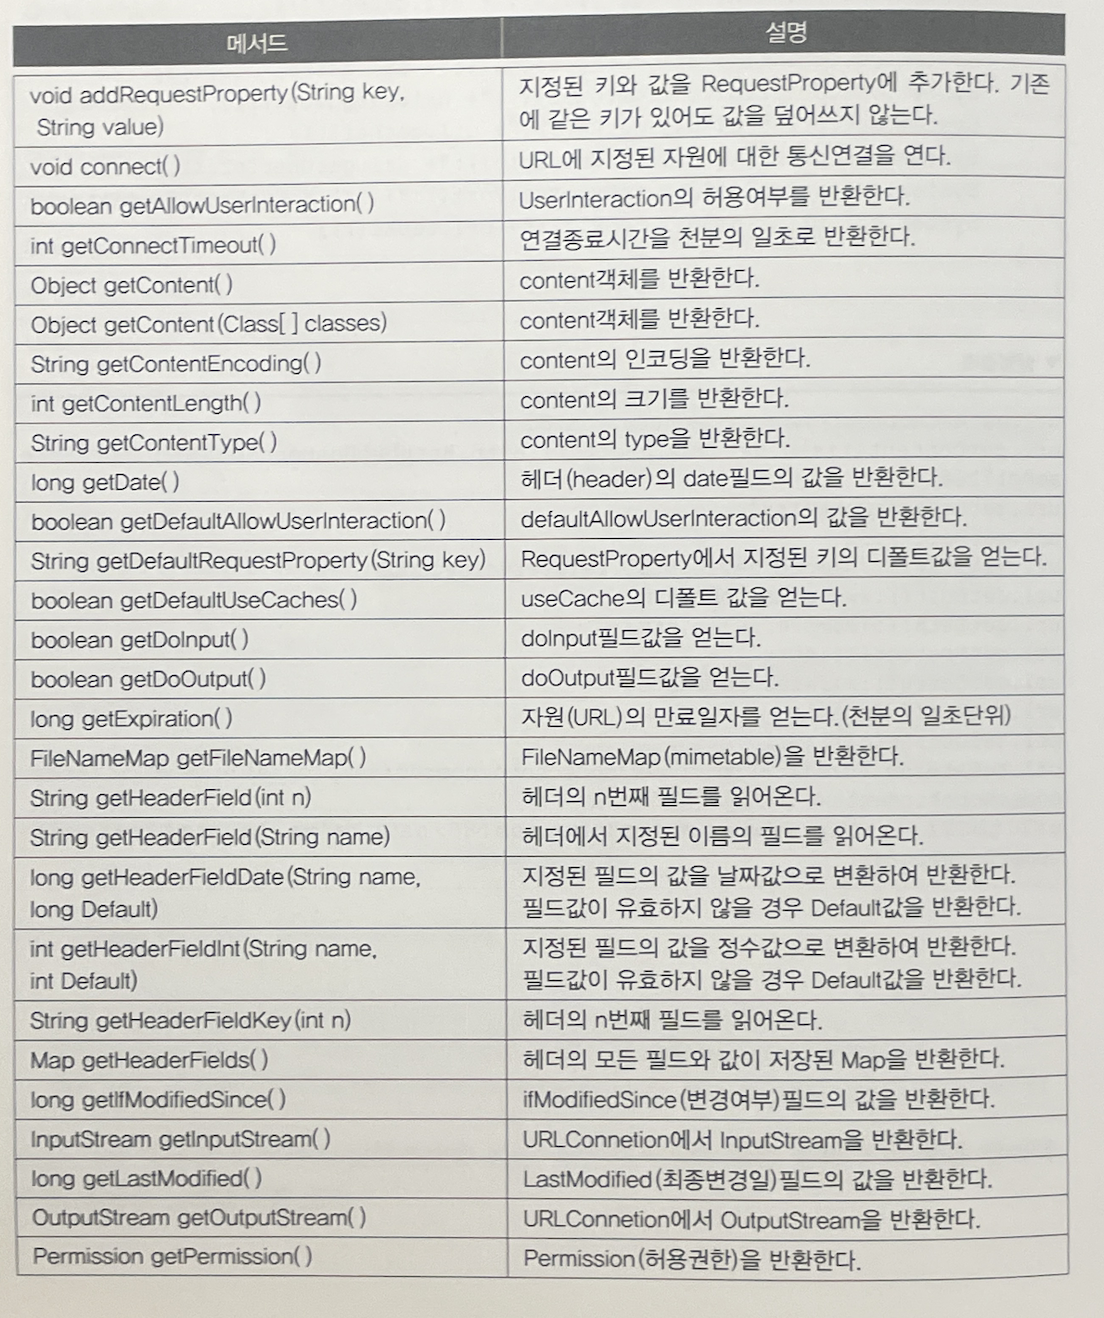 메서드 설명
void addRequestProperty(String key, 지정된 키와 값을 RequestProperty에 추가한다. 기존
String value) 에 같은 키가 있어도 값을 덮어쓰지 않는다.
void connect( ) URL에 지정된 자원에 대한 통신연결을 연다.
boolean getAllowUserInteraction( ) UserInteraction의 허용여부를 반환한다.
int getConnectTimeout( ) 연결종료시간을 천분의 일초로 반환한다.
Object getContent( ) content객체를 반환한다.
Object getContent(Class[ ] classes) content객체를 반환한다.
String getContentEncoding( ) content의 인코딩을 반환한다.
int getContentLength( ) content의 크기를 반환한다.
String getContentType( ) content의 type을 반환한다.
long getDate( ) 헤더(header)의 date필드의 값을 반환한다.
boolean getDefaultAllowUserInteraction( ) defaultAllowUserInteraction의 값을 반환한다.
String getDefaultRequestProperty(String key) RequestProperty에서 지정된 키의 디폴트값을 얻는다.
boolean getDefaultUseCaches( ) useCache의 디폴트 값을 얻는다.
boolean getDoInput( ) doInput필드값을 얻는다.
boolean getDoOutput( ) doOutput필드값을 얻는다.
long getExpiration( ) 자원(URL)의 만료일자를 얻는다.(천분의 일초단위)
FileNameMap getFileNameMap( ) FileNameMap(mimetable)을 반환한다.
String getHeaderField(int n) 헤더의 n번째 필드를 읽어온다.
String getHeaderField(String name) 헤더에서 지정된 이름의 필드를 읽어온다.
long getHeaderFieldDate(String name, 지정된 필드의 값을 날짜값으로 변환하여 반환한다.
long Default) 필드값이 유효하지 않을 경우 Default값을 반환한다.
int getHeaderFieldInt(String name, 지정된 필드의 값을 정수값으로 변환하여 반환한다.
int Default) 필드값이 유효하지 않을 경우 Default값을 반환한다.
String getHeaderFieldKey(int n) 헤더의 n번째 필드를 읽어온다.
Map getHeaderFields( ) 헤더의 모든 필드와 값이 저장된 Map을 반환한다.
long getIfModifiedSince( ) ifModifiedSince(변경여부)필드의 값을 반환한다.
InputStream getInputStream( ) URLConnetion에서 InputStream을 반환한다.
long getLastModified( ) LastModified(최종변경일)필드의 값을 반환한다.
OutputStream getOutputStream( ) URLConnetion에서 OutputStream을 반환한다.
Permission getPermission( ) Permission(허용권한)을 반환한다.